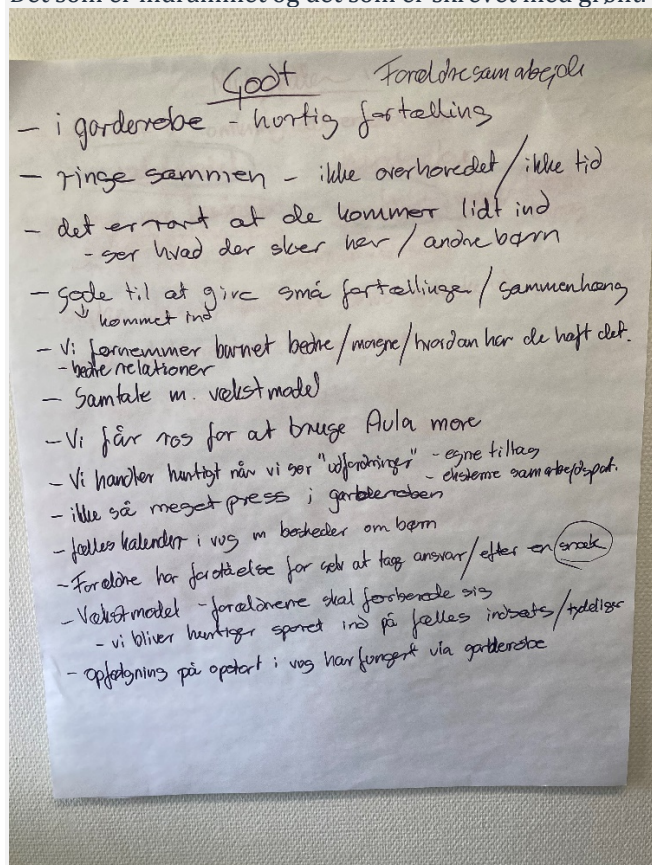 Det som er indrammet og det som er skrevet med grønt.
Godt Forældresamarbejde
- i garderobe - hurtig fortælling
- ringe sammen - ikke overhovedet / ikke tid
- det er rart at de kommer lidt ind
- ser hvad der sker her / andre børn
- gode til at give små fortællinger / sammenhæng
↓ kommet ind
- Vi fornemmer barnet bedre / / hvordan har de haft det.
- bedre relationer
- Samtale m. vækstmodel
- Vi får ros for at bruge Aula mere
- Vi handler hurtigt når vi ser "udfordringer" - egne tiltag
- eksterne samarbejdspat.
- ikke så meget press i garderoben
- fælles kalender i vug m beskeder om børn
- Forældre har forståelse for selv at tage ansvar / efter en snak
- Vækstmodel - forældrene skal forberede sig
- vi bliver hurtiger sporet ind på fælles indsats / tydeliger
- opfølgning på opstart i vug har fungert via garderobe